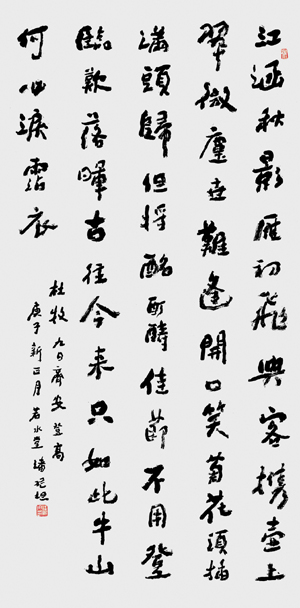 江涵秋影雁初飛與客携壺上
翠微塵世難逢開口笑菊花須插
滿頭歸但將酩酊醻佳節不用登
臨歎落暉古往今来只如此牛山
何必淚霑衣
杜牧九日齊安登高
庚子新正月若水堂潘